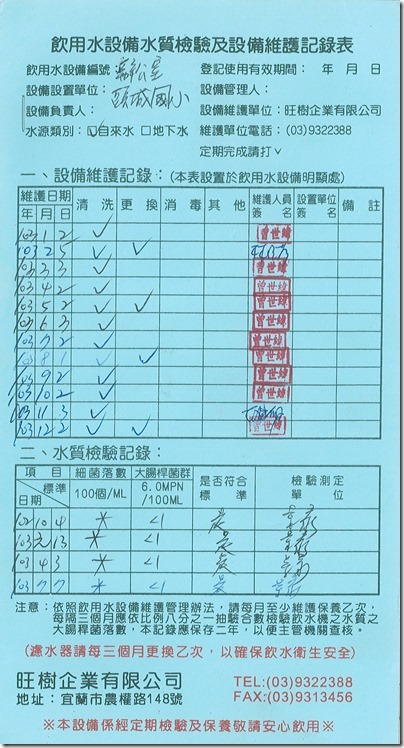 飲用水設備水質檢驗及設備維護記錄表
飲用水設備編號：辦公室 登記使用有效期間： 年 月 日
設備設置單位：頭城國小 設備管理人：
設備負責人： 設備維護單位：旺樹企業有限公司
水源類別：☑自來水 □地下水 維護單位電話：(03)9322388
定期完成請打∨
一、設備維護記錄：(本表設置於飲用水設備明顯處)
維護日期 清洗 更換 消毒 其他 維護人員簽名 設置單位簽名 備註
年 月 日
103 1 2 ✓ 曾世緯
103 2 5 ✓ ✓
103 3 3 ✓ 曾世緯
103 4 2 ✓ 曾世緯
103 5 2 ✓ ✓ 曾世緯
103 6 3 ✓ 曾世緯
103 7 2 ✓ 曾世緯
103 8 1 ✓ ✓ 曾世緯
103 9 2 ✓ 曾世緯
103 10 2 ✓ 曾世緯
103 11 3 ✓
103 12 2 ✓ ✓ 曾世緯
二、水質檢驗記錄：
項目 標準 日期 細菌落數 100個/ML 大腸桿菌群 6.0MPN/100ML 是否符合標準 檢驗測定單位
102 10 4 * <1 是
103 元 13 * <1 是
103 4 3 * <1 是
103 7 7 * <1 是
注意：依照飲用水設備維護管理辦法，請每月至少維護保養乙次，
每隔三個月應依比例八分之一抽驗台數檢驗飲水機之水質之
大腸桿菌落數，本記錄應保存二年，以便主管機關查核。
(濾水器請每三個月更換乙次，以確保飲水衛生安全)
旺樹企業有限公司 TEL:(03)9322388
地址：宜蘭市農權路148號 FAX:(03)9313456
※本設備係經定期檢驗及保養敬請安心飲用※